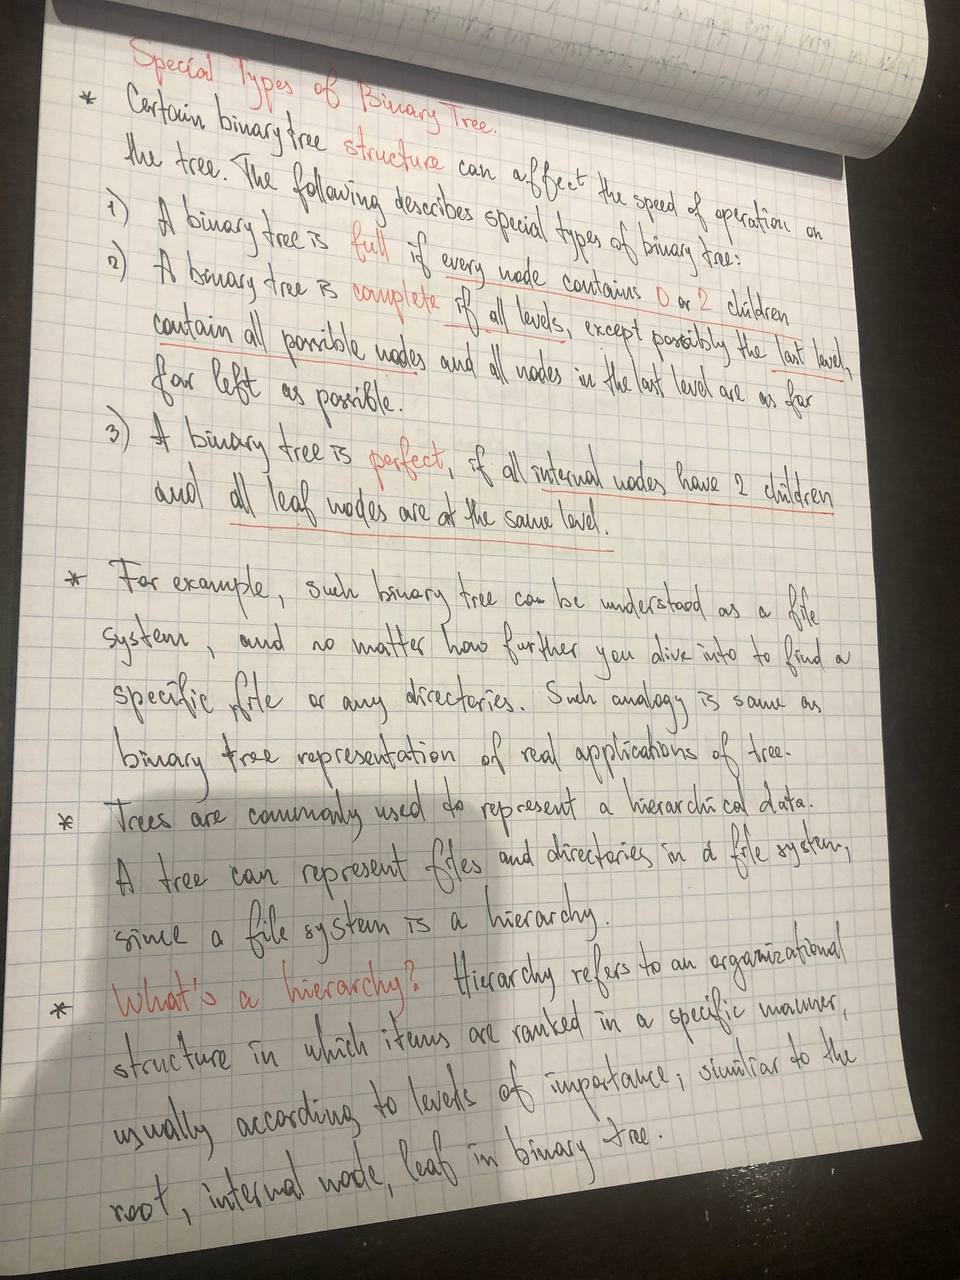 Special Types of Binary Tree.
* Certain binary tree structure can affect the speed of operation on
the tree. The following describes special types of binary tree:
1) A binary tree is full if every node contains 0 or 2 children
2) A binary tree is complete if all levels, except possibly the last level,
contain all possible nodes and all nodes in the last level are as far
far left as possible.
3) A binary tree is perfect, if all internal nodes have 2 children
and all leaf nodes are at the same level.
* For example, such binary tree can be understood as a file
system, and no matter how further you dive into to find a
specific file or any directories. Such analogy is same as
binary tree representation of real applications of tree.
* Trees are commonly used to represent a hierarchical data.
A tree can represent files and directories in a file system,
since a file system is a hierarchy.
* What's a hierarchy? Hierarchy refers to an organizational
structure in which items are ranked in a specific manner,
usually according to levels of importance, similiar to the
root, internal node, leaf in binary tree.